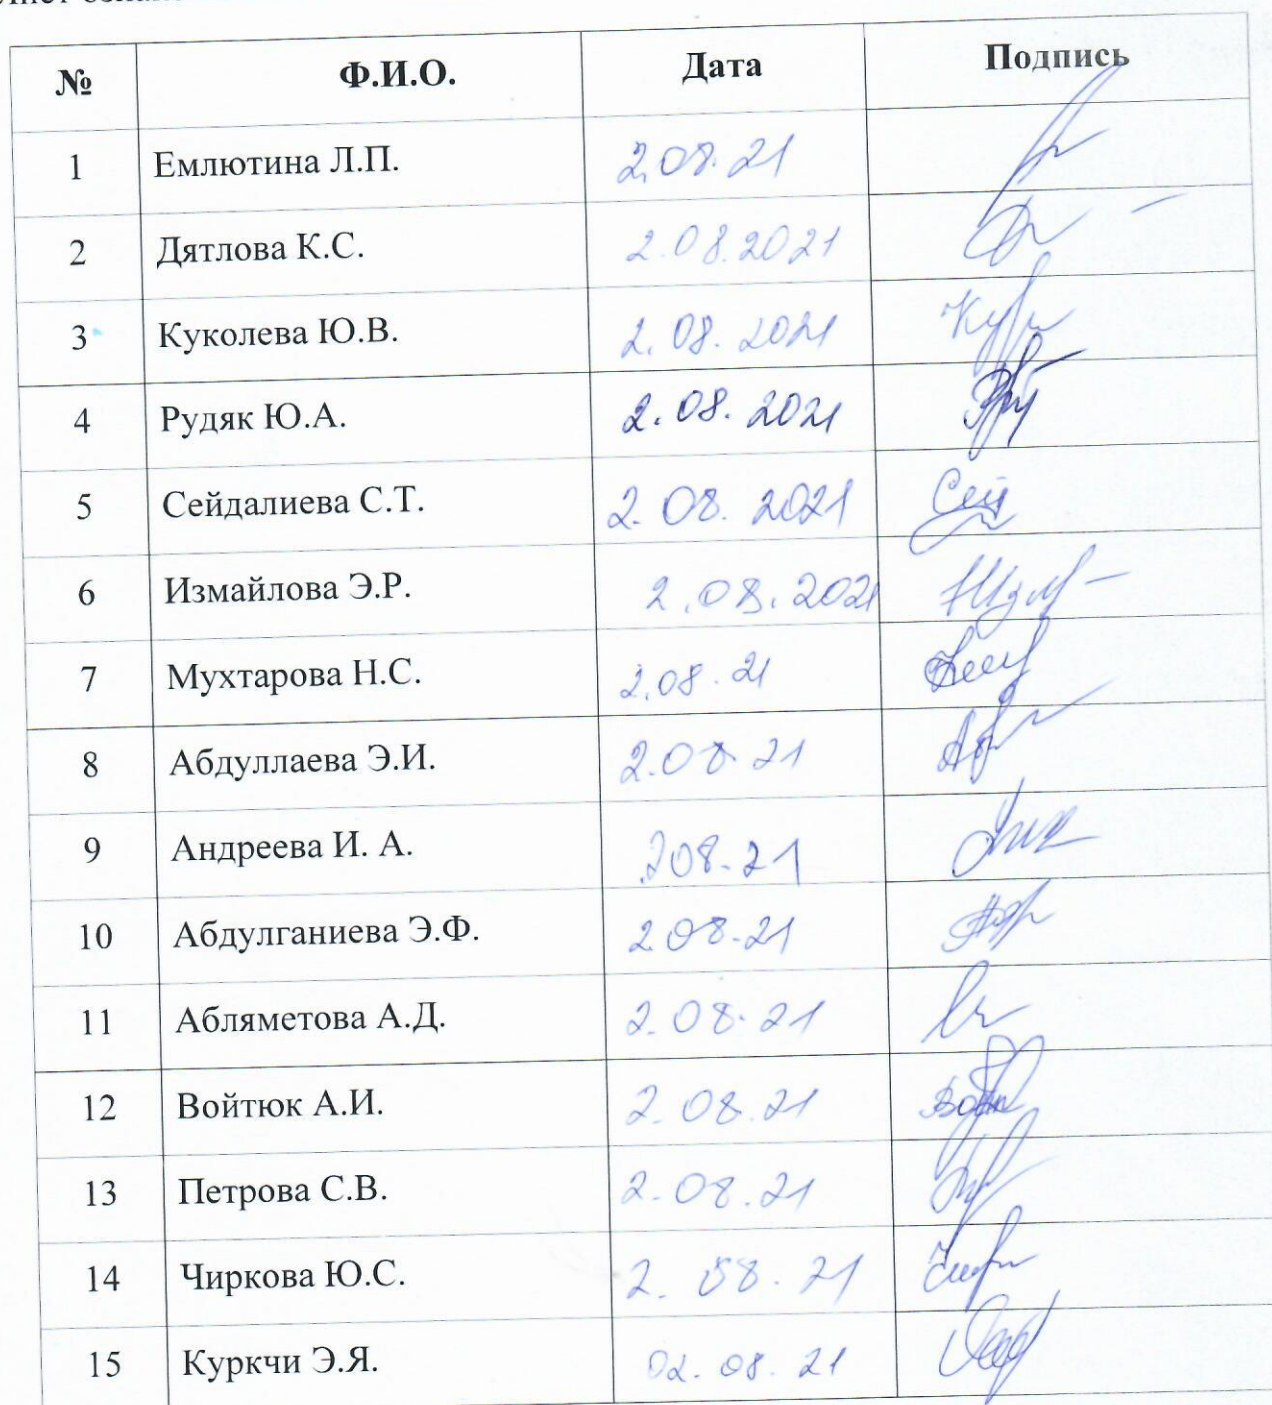 № Ф.И.О. Дата Подпись
1 Емлютина Л.П. 2.08.21
2 Дятлова К.С. 2.08.2021
3 Куколева Ю.В. 2.08.2021
4 Рудяк Ю.А. 2.08.2021
5 Сейдалиева С.Т. 2.08.2021
6 Измайлова Э.Р. 2.08.2021
7 Мухтарова Н.С. 2.08.21
8 Абдуллаева Э.И. 2.08.21
9 Андреева И. А. 208.21
10 Абдулганиева Э.Ф. 2.08.21
11 Абляметова А.Д. 2.08.21
12 Войтюк А.И. 2.08.21
13 Петрова С.В. 2.08.21
14 Чиркова Ю.С. 2.08.21
15 Куркчи Э.Я. 02.08.21